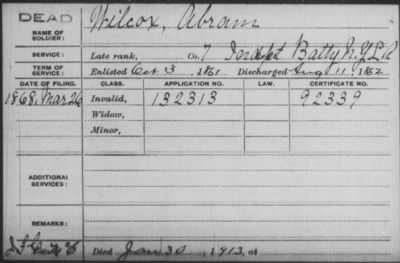 DEAD
Wilcox, Abram
NAME OF SOLDIER:
SERVICE: Late rank, Co. 7 Indpt Batty N.Y.L.A
TERM OF SERVICE: Enlisted Oct 3, 1861 Discharged Aug 11, 1862
DATE OF FILING. CLASS. APPLICATION NO. LAW. CERTIFICATE NO.
1868, Mar 26 Invalid, 132313 92339
Widow,
Minor,
ADDITIONAL SERVICES:
REMARKS:
Died Jan 30, 1913, at